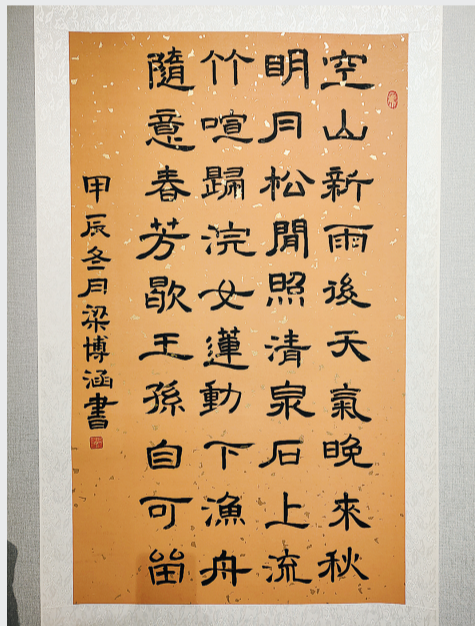 空山新雨後天氣晚來秋
眀月松閒照清泉石上流
竹喧歸浣女蓮動下漁舟
隨意春芳歇王孫自可留
甲辰冬月梁博涵書